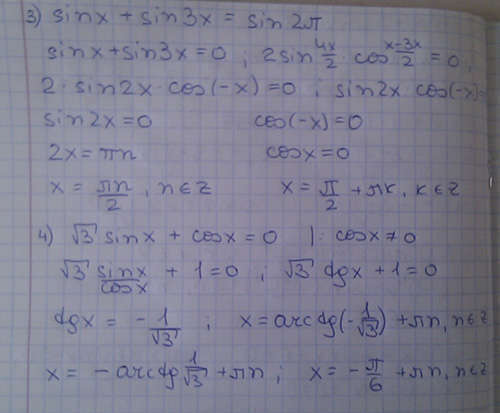 3) sinx + sin3x = sin2π
sinx + sin3x = 0 ; 2sin 4x/2 · cos x-3x/2 = 0 ;
2 · sin2x · cos(-x) = 0 ; sin2x cos(-x)=
sin2x = 0 cos(-x) = 0
2x = πn cosx = 0
x = πn/2 , n ∈ z x = π/2 + πk, k ∈ z
4) √3 sinx + cosx = 0 |: cosx ≠ 0
√3 sinx/cosx + 1 = 0 ; √3 tgx + 1 = 0
tgx = -1/√3 ; x = arctg(-1/√3) + πn, n ∈ z
x = -arctg 1/√3 + πn ; x = -π/6 + πn, n ∈ z